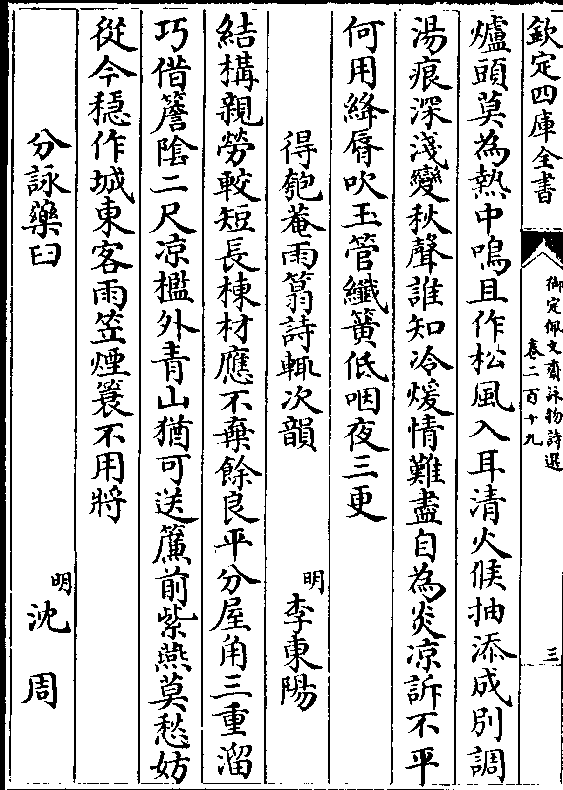 欽定四庫全書
御定佩文齋詠物詩選
卷二百十九
三
爐頭莫為熱中鳴且作松風入耳清火候抽添成別調
湯痕深淺變秋聲誰知冷煖情難盡自為炎凉訴不平
何用絳脣吹玉管纖簧低咽夜三更
得匏菴雨篛詩輒次韻
明
李東陽
結構親勞較短長棟材應不棄餘良平分屋角三重溜
巧借簷陰二尺凉檻外青山猶可送簾前紫燕莫愁妨
從今穩作城東客雨笠煙蓑不用將
分詠藥臼
明
沈周